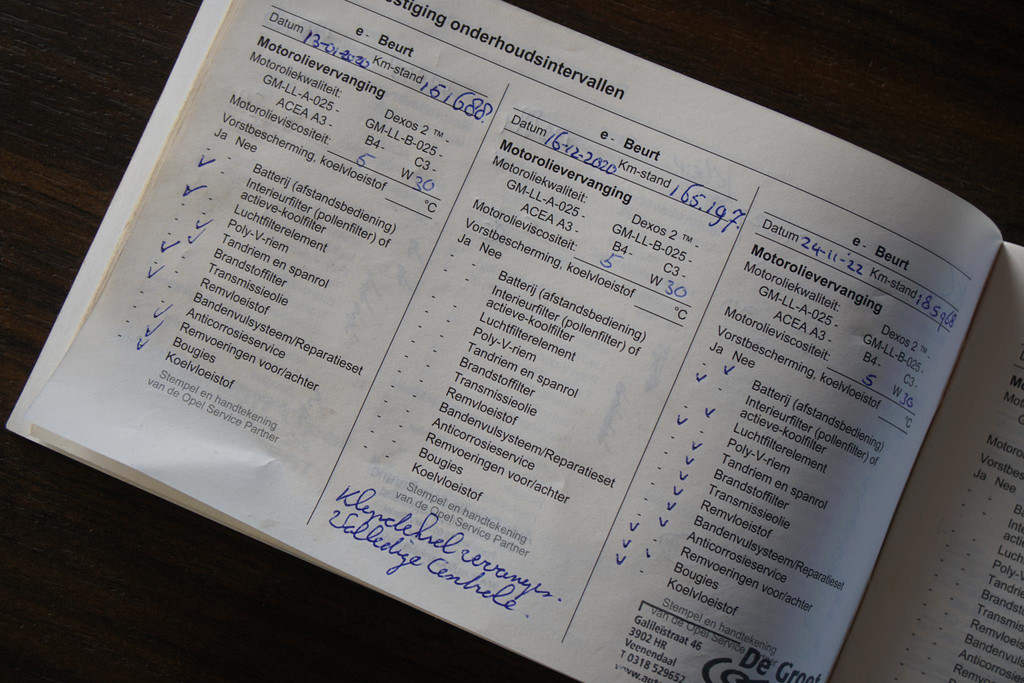 stiging onderhoudsintervallen
e - Beurt
Datum 13-01-2020 Km-stand 151688.
Motorolievervanging
Motoroliekwaliteit: Dexos 2 ™ -
GM-LL-A-025 - GM-LL-B-025 -
ACEA A3 - B4 - C3 -
Motorolieviscositeit: 5 W 30
Vorstbescherming, koelvloeistof °C
Ja Nee
Batterij (afstandsbediening)
Interieurfilter (pollenfilter) of
actieve-koolfilter
Luchtfilterelement
Poly-V-riem
Tandriem en spanrol
Brandstoffilter
Transmissieolie
Remvloeistof
Bandenvulsysteem/Reparatieset
Anticorrosieservice
Remvoeringen voor/achter
Bougies
Koelvloeistof
Stempel en handtekening
van de Opel Service Partner
e - Beurt
Datum 16-12-2020 Km-stand 165.197
Motorolievervanging
Motoroliekwaliteit: Dexos 2 ™ -
GM-LL-A-025 - GM-LL-B-025 -
ACEA A3 - B4 - C3 -
Motorolieviscositeit: 5 W 30
Vorstbescherming, koelvloeistof °C
Ja Nee
Batterij (afstandsbediening)
Interieurfilter (pollenfilter) of
actieve-koolfilter
Luchtfilterelement
Poly-V-riem
Tandriem en spanrol
Brandstoffilter
Transmissieolie
Remvloeistof
Bandenvulsysteem/Reparatieset
Anticorrosieservice
Remvoeringen voor/achter
Bougies
Koelvloeistof
Stempel en handtekening
van de Opel Service Partner
e - Beurt
Datum 24-11-22 Km-stand 185968
Motorolievervanging
Motoroliekwaliteit: Dexos 2 ™ -
GM-LL-A-025 - GM-LL-B-025 -
ACEA A3 - B4 - C3 -
Motorolieviscositeit: 5 W 30
Vorstbescherming, koelvloeistof °C
Ja Nee
Batterij (afstandsbediening)
Interieurfilter (pollenfilter) of
actieve-koolfilter
Luchtfilterelement
Poly-V-riem
Tandriem en spanrol
Brandstoffilter
Transmissieolie
Remvloeistof
Bandenvulsysteem/Reparatieset
Anticorrosieservice
Remvoeringen voor/achter
Bougies
Koelvloeistof
Stempel en handtekening
van de Opel Service
Galileïstraat 46
3902 HR
Veenendaal
T 0318 529652
De Groot
Ja Nee